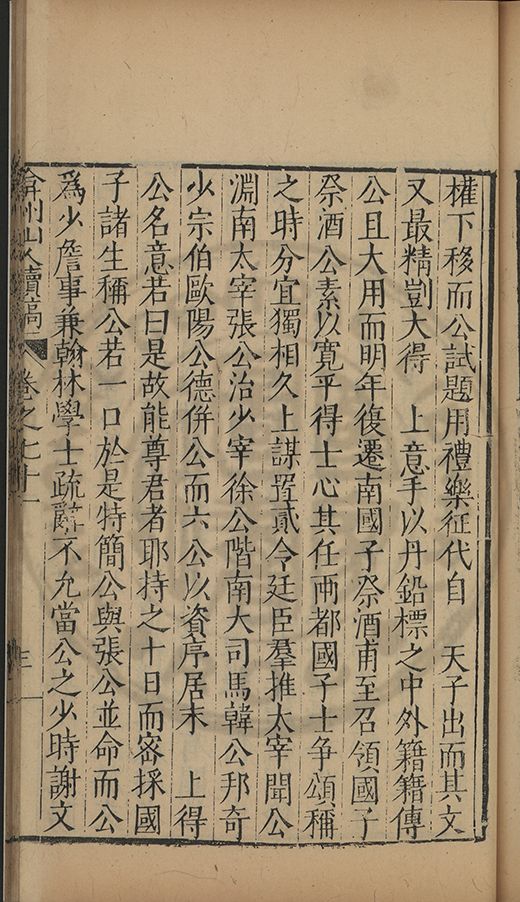 權下移而公試題用禮樂征代自　天子出而其文
又最精剴大得　上意手以丹鉛標之中外籍籍傳
公且大用而明年復遷南國子祭酒甫至召領國子
祭酒公素以寬平得士心其任兩都國子士爭頌稱
之時分宜獨相久上謀置貳令廷臣羣推太宰聞公
淵南太宰張公治少宰徐公階南大司馬韓公邦奇
少宗伯歐陽公德併公而六公以資序居末　上得
公名意若曰是故能尊君者耶持之十日而密採國
子諸生稱公若一口於是特簡公與張公並命而公
為少詹事兼翰林學士疏辭不允當公之少時謝文
弇州山人續稿　卷之七十一　三